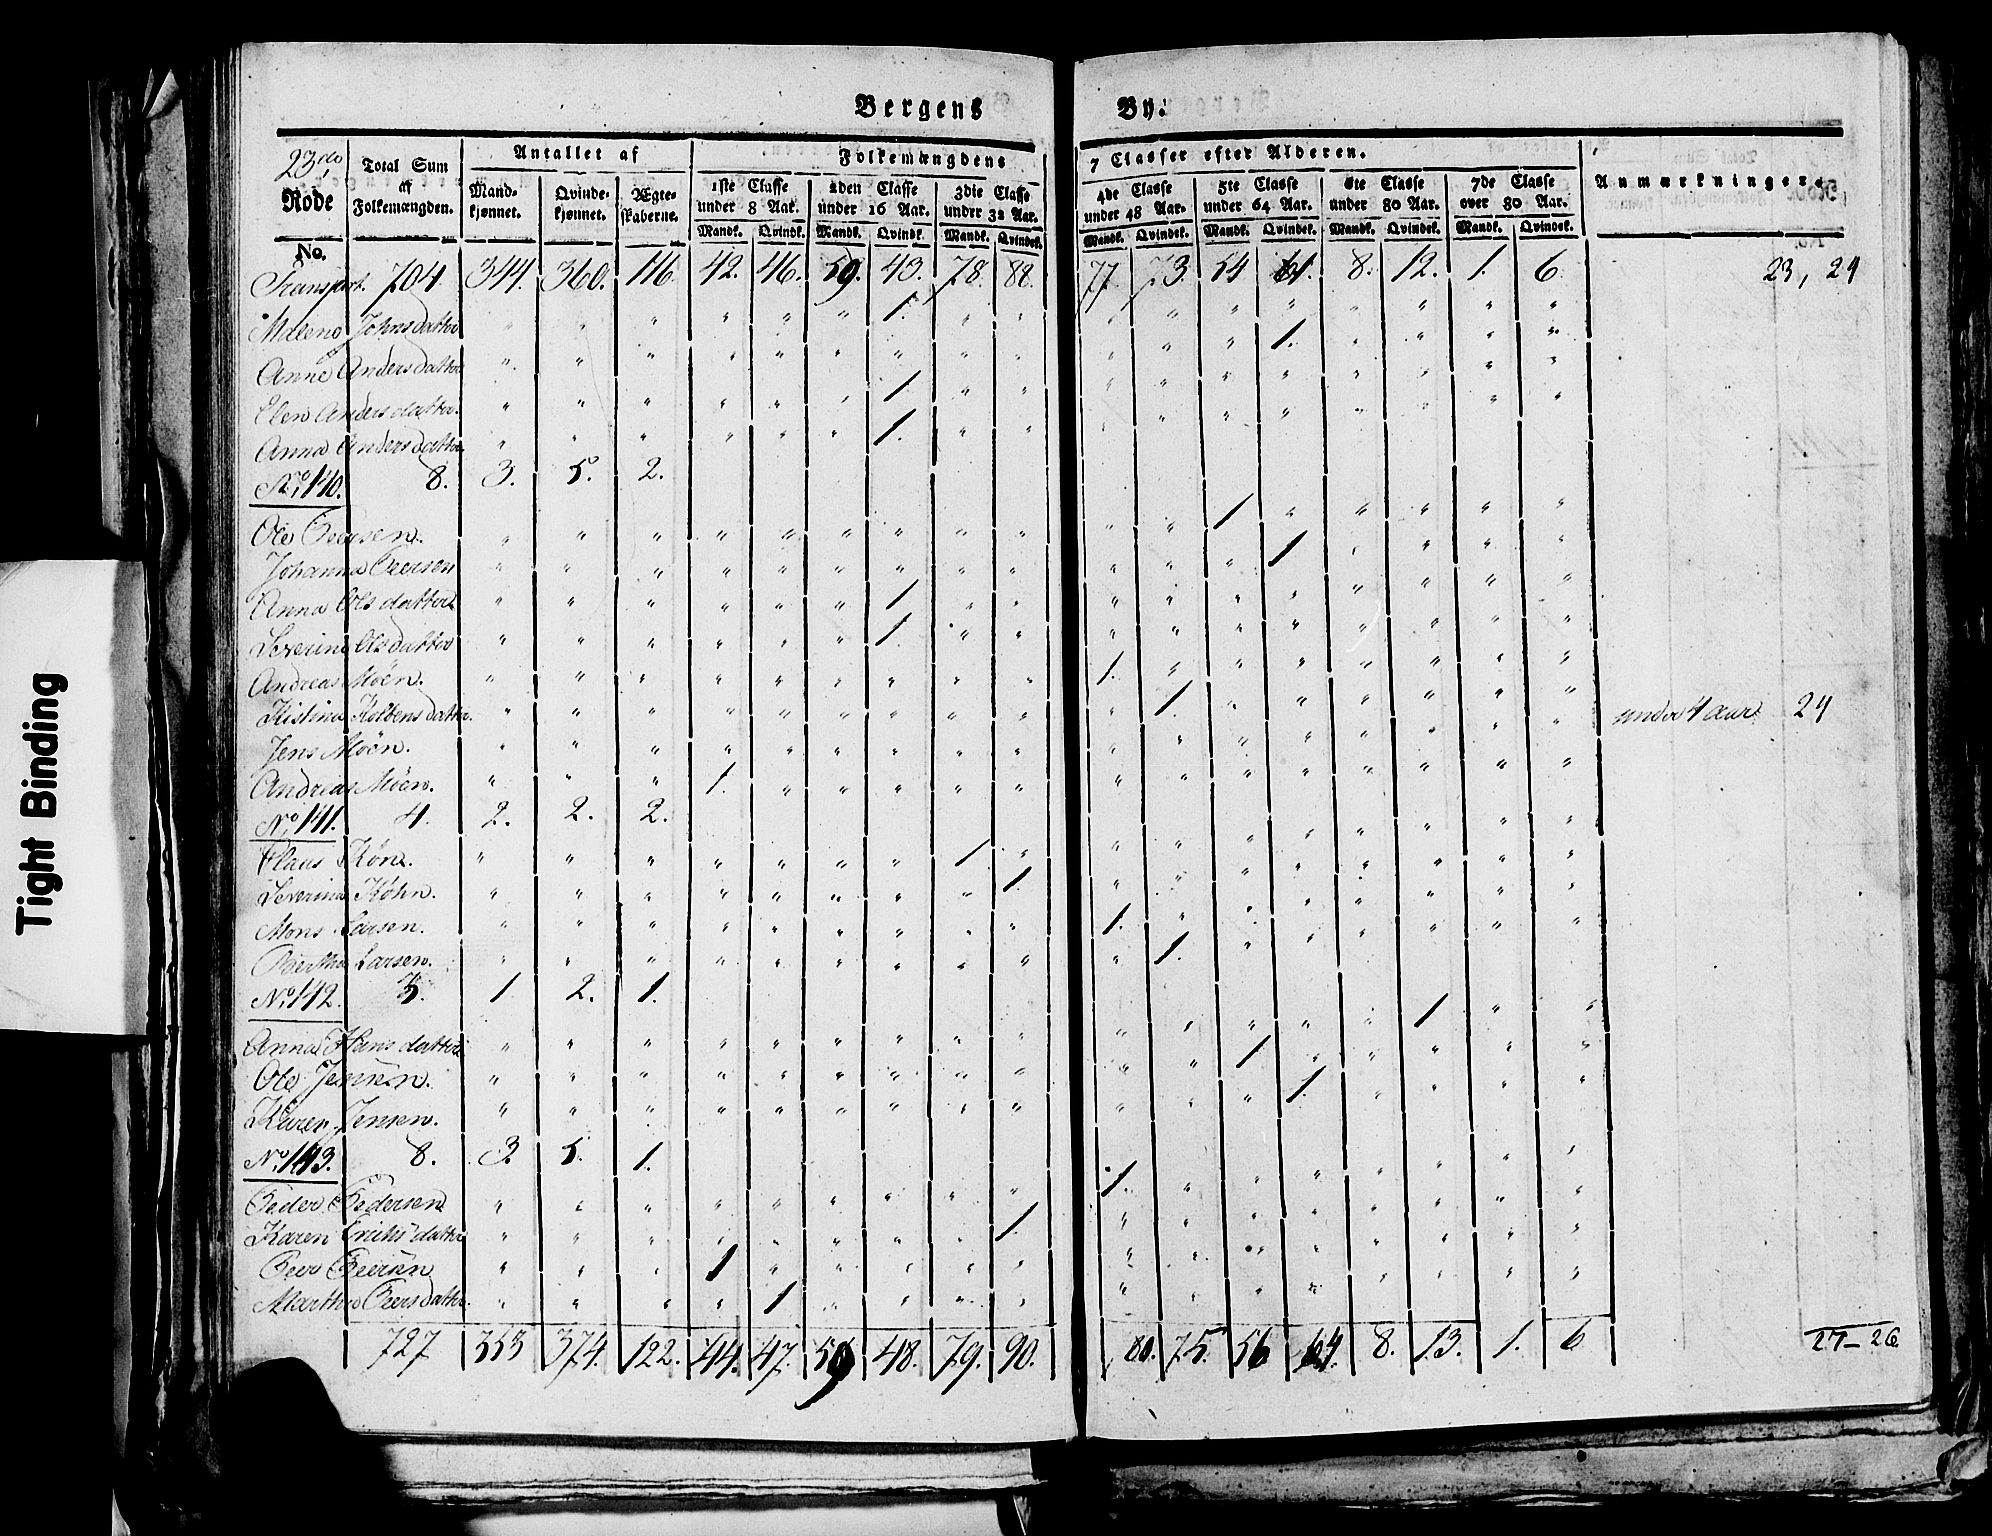 Bergens By.
23do Rode No. | Total Sum af Folkemængden. | Antallet af | Folkemængdens 7 Classer efter Alderen. | Anmærkninger.
Mandkjønnet. | Qvindekjønnet. | Ægteskaberne. | 1ste Classe under 8 Aar. | 2den Classe under 16 Aar. | 3die Classe under 32 Aar. | 4de Classe under 48 Aar. | 5te Classe under 64 Aar. | 6te Classe under 80 Aar. | 7de Classe over 80 Aar.
Mandk. | Qvindek. | Mandk. | Qvindk. | Mandk. | Qvindek. | Mandk. | Qvindek. | Mandk. | Qvindek. | Mandk. | Qvindek. | Mandk. | Qvindek.
Transport. 704 344. 360. 116. 42. 46. 59. 43. 78. 88. 77 73. 54 61. 8. 12. 1. 6. 23, 24
Malene Johnsdatter " " " " " " 1. " " " " " " " " " "
Anne Andersdatter " " " " " " " " " " " " 1. " " " "
Elen Andersdatter. " " " " " " 1 " " " " " " " " " "
Anna Andersdatter. " " " " " " 1. " " " " " " " " " "
No. 140. 8. 3. 5. 2.
Ole Peersen. " " " " " " " " " " " 1 " " " " "
Johanna Peersen " " " " " " " " " " " " 1 " " " "
Anna Olsdatter " " " " " " 1 " " " " " " " " " "
Severine Olsdatter " " " " " " 1 " " " " " " " " " "
Andreas Moen. " " " " " " " " " 1. " " " " " " "
Kistina Kolbensdatter. " " " " " " " " " " 1. " " " " " "
under 4 Aar 24
Jens Moen. " " " " " " " " " " " " " " " " "
Andreas Moen. " " " 1. " " " " " " " " " " " " "
No. 141. 4. 2. 2. 2.
Claus Køn. " " " " " " " 1 " " " " " " " " "
Severine Køhn. " " " " " " " " 1. " " " " " " " "
Mons Larsen. " " " " " " " " " 1. " " " " " " "
Berthe Larsen. " " " " " " " " " " 1. " " " " " "
No. 142. 3. 1 2. 1.
Anna Hansdatter " " " " " " " " " " " " " " 1 " "
Ole Jensen. " " " " " " " " " " " 1. " " " " "
Karen Jensen. " " " " " " " " " " " " 1. " " " "
No. 143. 8. 3. 5. 1.
Peder Pedersen " " " " " " " " " 1. " " " " " " "
Karen Erichsdatter " " " " " " " " 1. " " " " " " " "
Peer Peersen " " " 1 " " " " " " " " " " " " "
Marthe Peersdatter. " " " " 1 " " " " " " " " " " " "
727 353 374. 122. 44. 47. 59 48. 79. 90. 80. 75. 56 64. 8. 13. 1. 6 27–26
Tight Binding